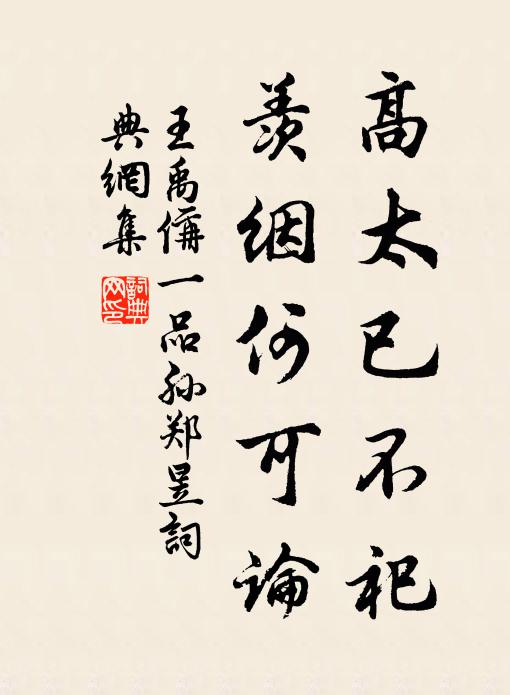 高太已不祀
羡絪何可論
王禹偁一品孙郑昱詞
典網集
詞典网印